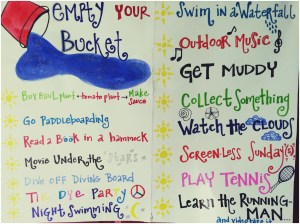 EMPTY YOUR
Bucket
plant → tomato plant → Make
sauce
Go Paddleboarding
Read a Book in a hammock
Movie Under the Stars
Dive off Diving Board
Tie Dye Party
Night Swimming
Swim in a Waterfall
Outdoor Music
GET MUDDY
Collect Something
Watch the CLOUDS
Screen-less Sunday(s)
PLAY TENNIS
Learn the Running-
MAN